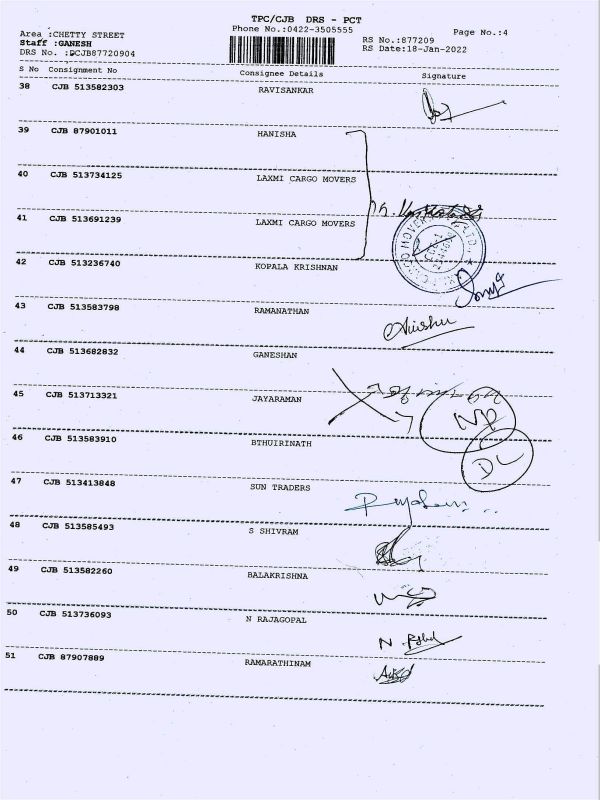 TPC/CJB DRS - PCT
Phone No.:0422-3505555
Page No.:4
Area :CHETTY STREET
Staff :GANESH
DRS No. :DCJB87720904
RS No.:877209
RS Date:18-Jan-2022
S No Consignment No Consignee Details Signature
38 CJB 513582303 RAVISANKAR
39 CJB 87901011 HANISHA
40 CJB 513734125 LAXMI CARGO MOVERS
41 CJB 513691239 LAXMI CARGO MOVERS
42 CJB 513236740 KOPALA KRISHNAN
43 CJB 513583798 RAMANATHAN
44 CJB 513682832 GANESHAN
45 CJB 513713321 JAYARAMAN
NP
46 CJB 513583910 BTHUIRINATH
DL
47 CJB 513413848 SUN TRADERS
48 CJB 513585493 S SHIVRAM
49 CJB 513582260 BALAKRISHNA
50 CJB 513736093 N RAJAGOPAL
51 CJB 87907889 RAMARATHINAM